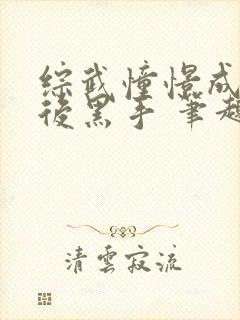 综武憧憬成
后黑手 筆趣
清雲寂流